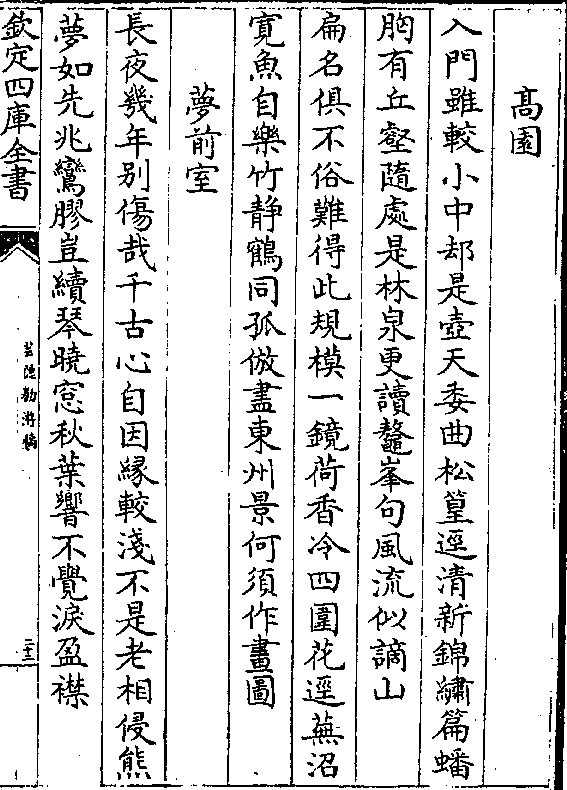 髙園
入門雖較小中却是壺天委曲松篁逕清新錦繡篇蟠
胸有丘壑隨處是林泉更讀鼇峯句風流似謫山
扁名俱不俗難得此規模一鏡荷香冷四圍花逕蕪沼
寛魚自樂竹静鶴同孤倣盡東州景何須作畫圖
夢前室
長夜幾年别傷哉千古心自因緣較淺不是老相侵熊
夢如先兆鸞膠豈續琴曉窓秋葉響不覺淚盈襟
欽定四庫全書
芸隠勌游稿
二十三